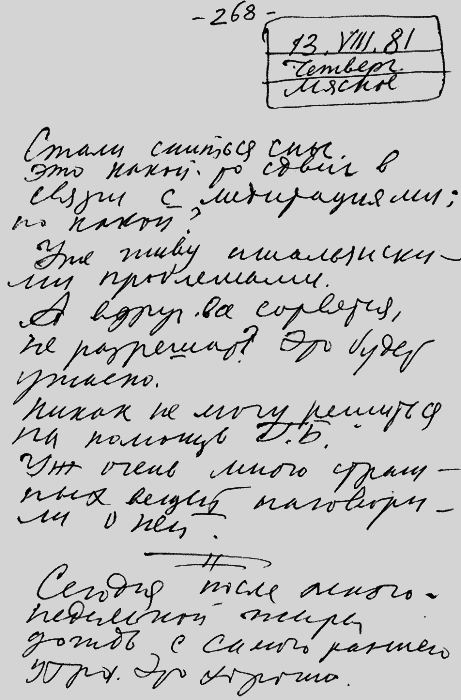 -268-
13.VIII.81
Четверг.
Мясное
Стали сниться сны.
это какой-то сдвиг в
связи с медитациями;
но какой?
Уже живу итальянски-
ми проблемами.
А вдруг все сорвется,
не разрешат? Это будет
ужасно.
Никак не могу решиться
на помощь Д.Б.
Уж очень много страш-
ных вещей наговори-
ли о ней.
Сегодня после много-
недельной жары
дождь с самого раннего
утра. Это хорошо.